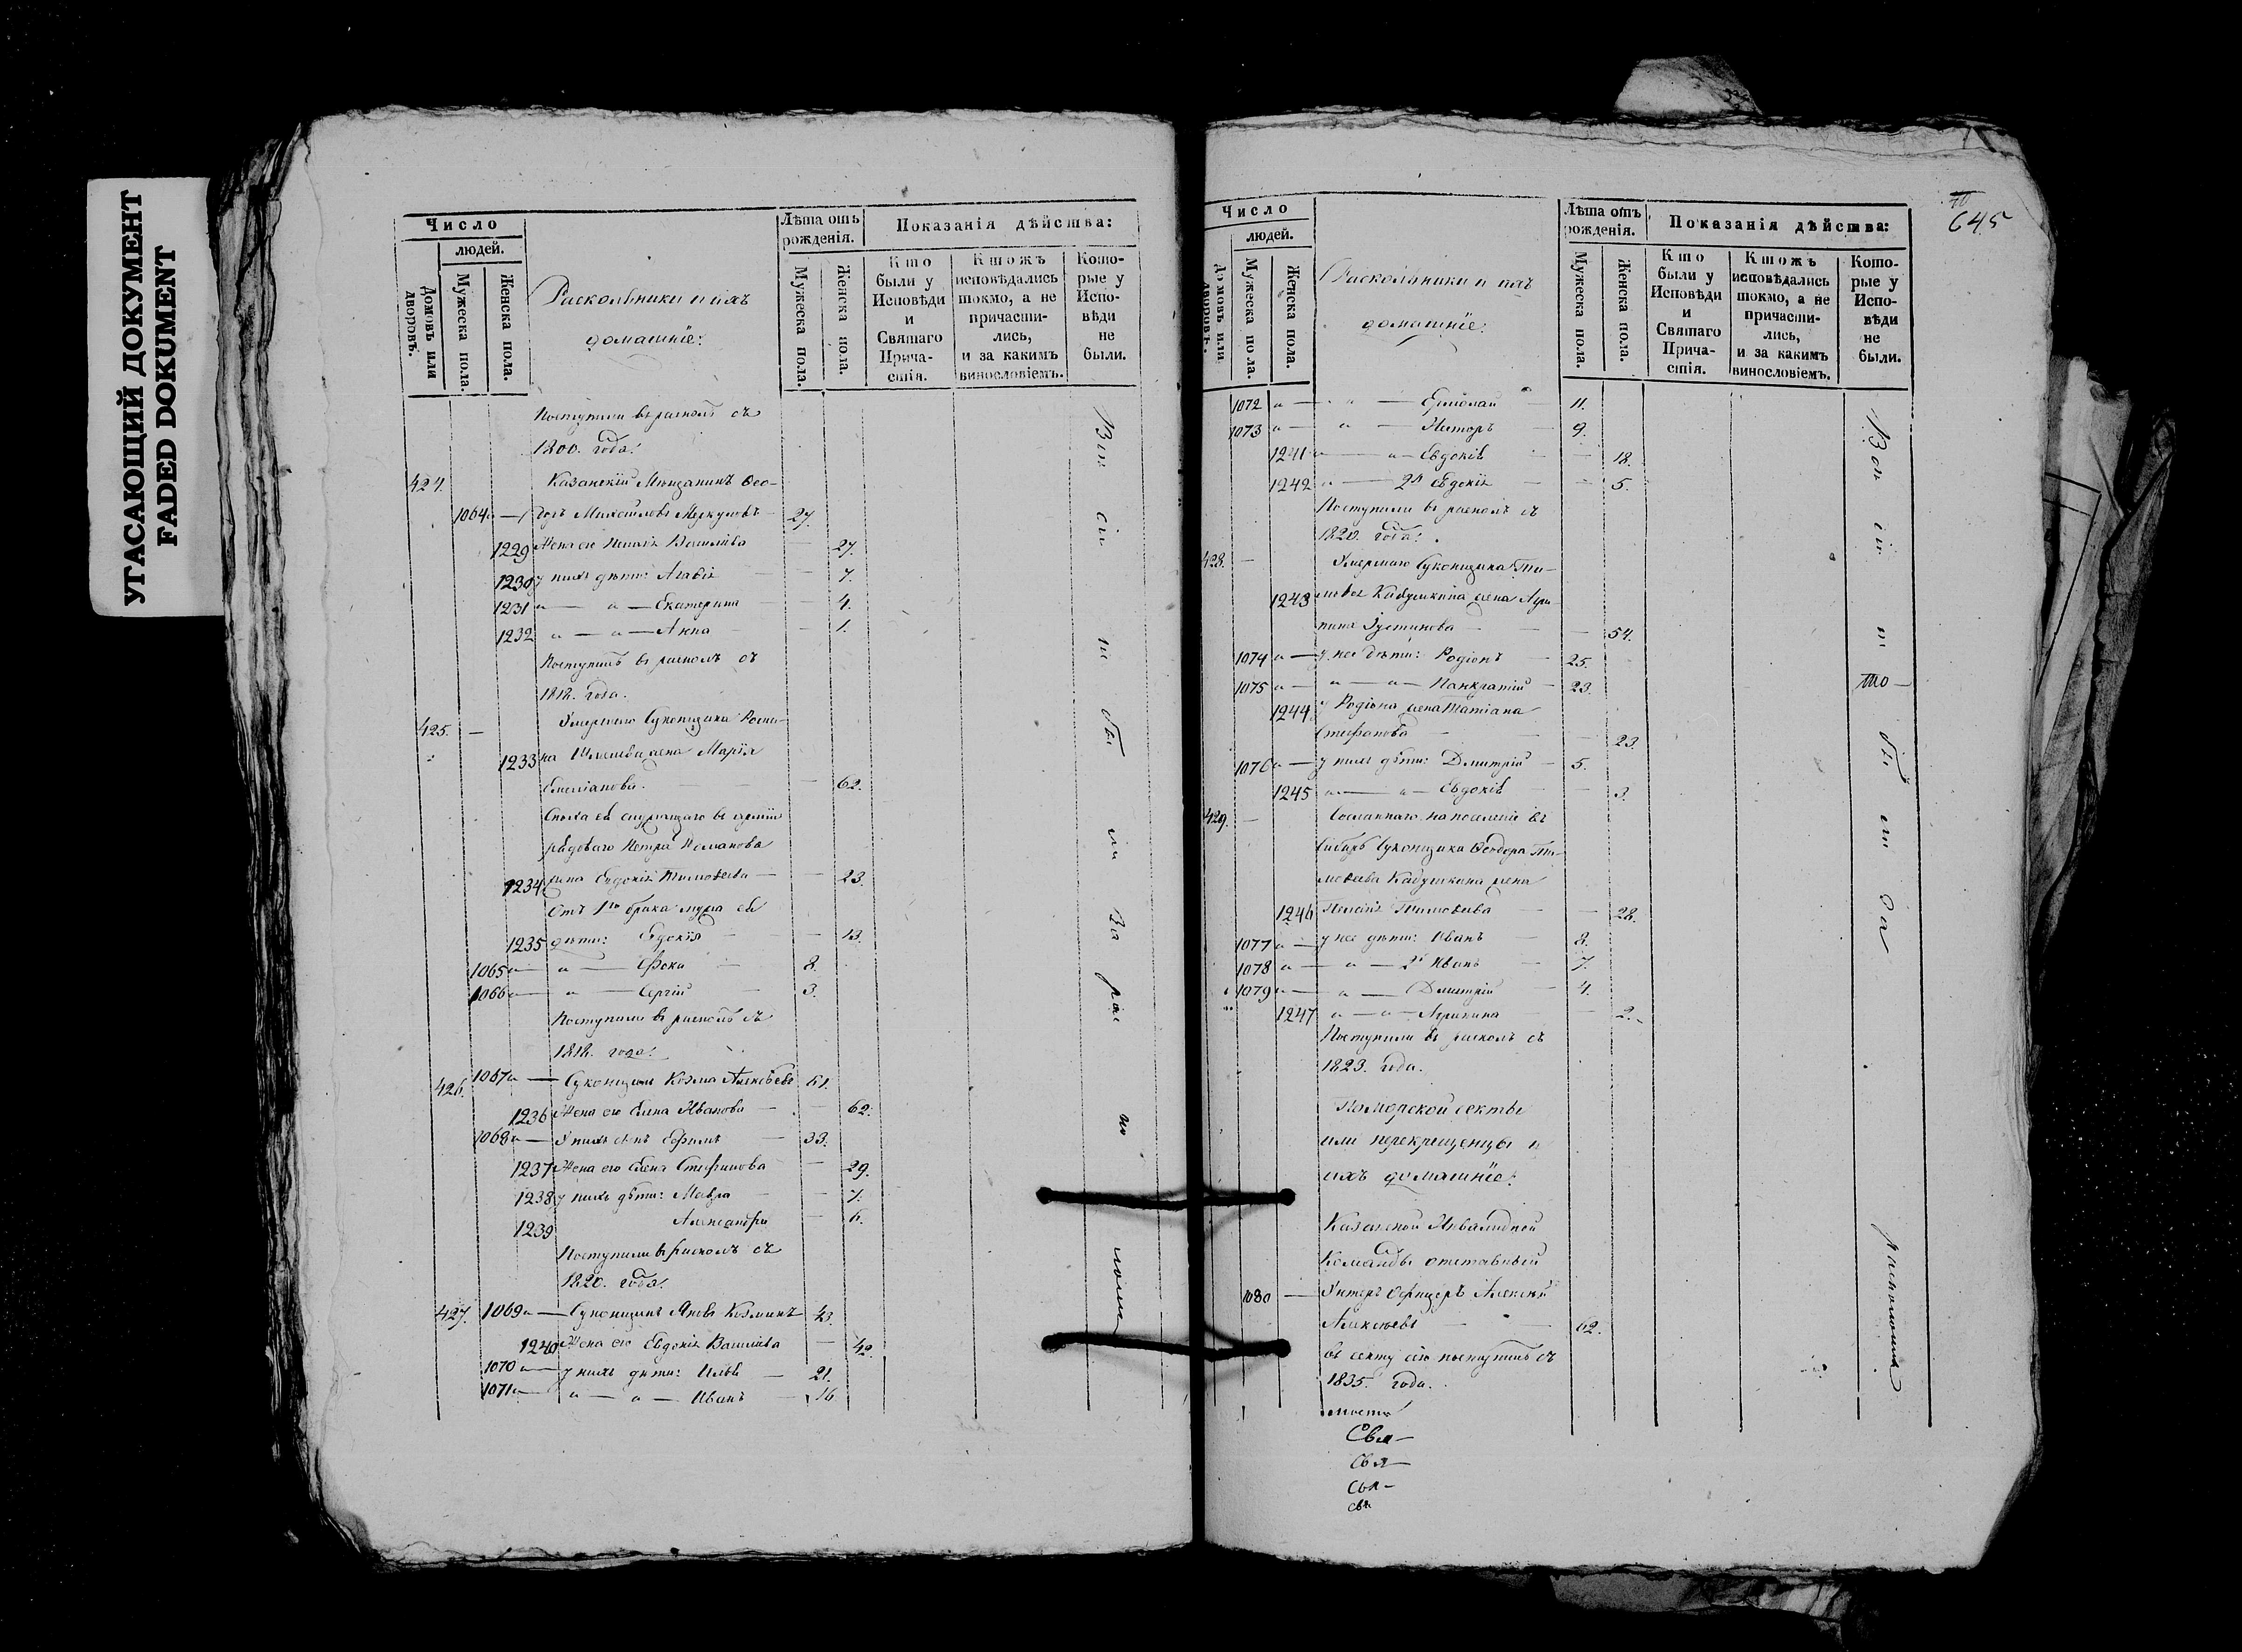 УГАСАЮЩИЙ ДОКУМЕНТ
FADED DOKUMENT
Число
людей.
Домовъ или дворовъ.
Мужеска пола.
Женска пола.
Раскольники и ихъ
домашніе:
Лѣта отъ рожденія.
Мужеска пола.
Женска пола.
Показанія дѣйства:
Кто были у Исповѣди и Святаго Причастія.
Ктожъ исповѣдались токмо, а не причастились, и за какимъ винословіемъ.
Которые у Исповѣди не были.
Поступили въ расколъ съ
1800. года.
424. Казанскій Мѣщанинъ Ѳео-
1064 доръ Михайловъ 27.
1229 Жена его Васильева 27.
1230 у нихъ дѣти: Агавія 7.
1231 — Екатерина 4.
1232 — Анна 1.
Поступилъ въ расколъ съ
1818. года.
425. Умершаго Суконщика
1233 жена Марія
Емеліанова 62.
Сноха ея служащаго въ арміи
рядоваго Петра Романова
1234 жена Евдокія Тимоѳеева 23.
Отъ 1го брака мужа ея
1235 дѣти: Евдокія 13.
1065 — Фока 8.
1066 — Сергій 3.
Поступили въ расколъ съ
1818. года.
426. 1067 Суконщикъ Козма Алексѣевъ 61.
1236 Жена его Елена Иванова 62.
1068 У нихъ сынъ Ефимъ 33.
1237 Жена его Елена Стефанова 29.
1238 у нихъ дѣти: Мавра 7.
1239 Александра 6.
Поступили въ расколъ съ
1820. года.
427. 1069 Суконщикъ Яковъ Козминъ 43.
1240 Жена его Евдокія Васильева 42.
1070 у нихъ дѣти: Илья 21.
1071 — Иванъ 16
Всѣ сіи не были за расколомъ
645
Число
людей.
Домовъ или дворовъ.
Мужеска пола.
Женска пола.
Раскольники и ихъ
домашніе:
Лѣта отъ рожденія.
Мужеска пола.
Женска пола.
Показанія дѣйства:
Кто были у Исповѣди и Святаго Причастія.
Ктожъ исповѣдались токмо, а не причастились, и за какимъ винословіемъ.
Которые у Исповѣди не были.
1072 — Ермолай 11.
1073 — 9.
1241 — Евдокія 18.
1242 — 2я Евдокія 5.
Поступили въ расколъ съ
1820. года.
428. Умершаго Суконщика Ти-
1243 моѳея Кадушкина жена Агри-
пина Іустинова 54.
1074 у нее дѣти: Родіонъ 25.
1075 — Панкратій 23.
1244 у Родіона жена Татіана
Стефанова 23.
1076 у нихъ дѣти: Дмитрій 5.
1245 — Евдокія 3.
429. Сосланнаго на поселеніе въ
Сибирь Суконщика Ѳеодора Ти-
моѳеева Кадушкина жена
1246 Пелагія Тимоѳеева 28.
1077 у нее дѣти: Иванъ 8.
1078 — 2й Иванъ 7.
1079 — Дмитрій 4.
1247 — Агрипина 2.
Поступили въ расколъ съ
1823. года.
Поморской секты
или перекрещенцы и
ихъ домашніе:
Казанской Инвалидной
Команды отставный
1080 Унтеръ Офицеръ Алексѣй
Алексѣевъ 62.
въ секту сію поступилъ съ
1835. года.
Свя-
Свя-
Свя-
свя